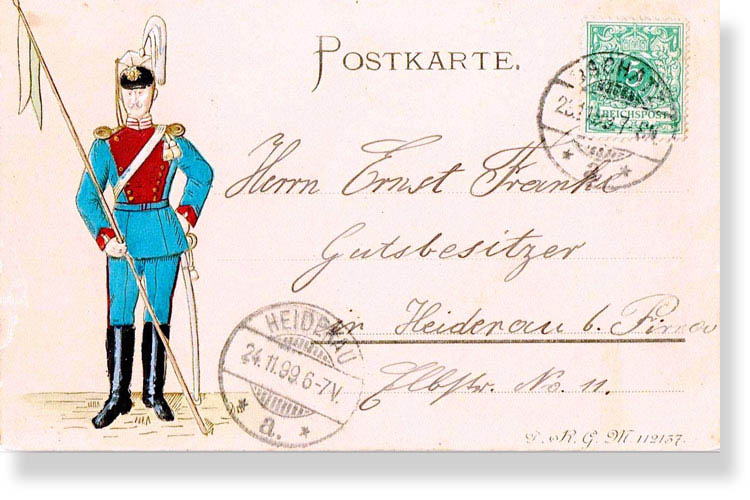 POSTKARTE.
5
REICHSPOST
Herrn Ernst Franke
Gutsbesitzer
in Heidenau b. Pirna
Elbstr. No. 11.
HEIDENAU
24.11.99.6-7V.
* a. *
D. R. G. M. 112137.